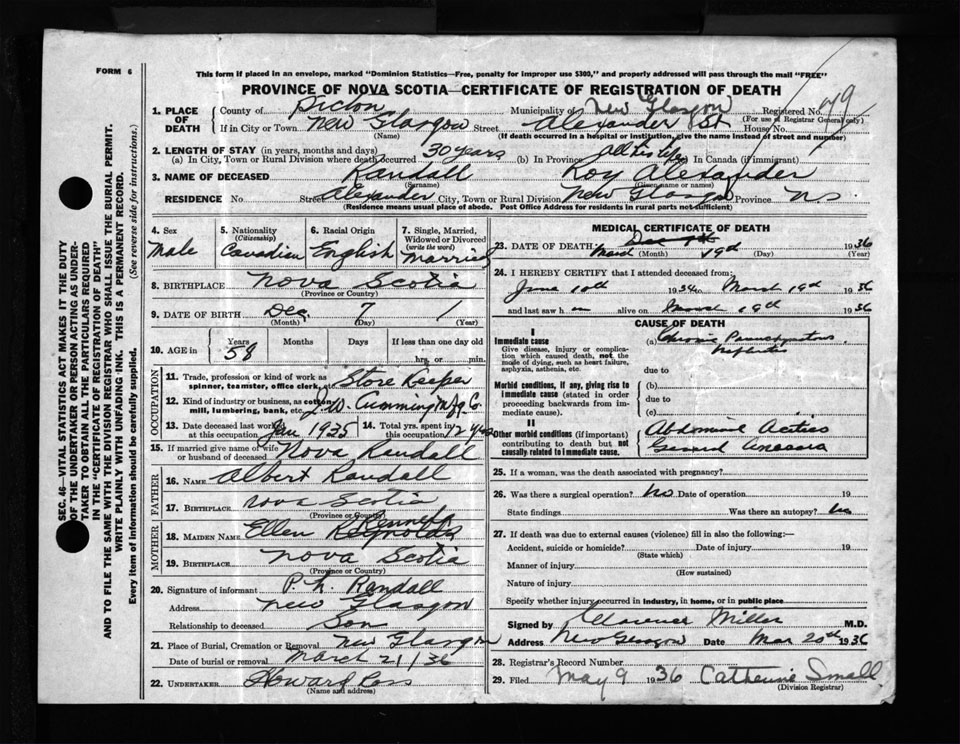 FORM 6
This form if placed in an envelope, marked "Dominion Statistics—Free, penalty for improper use $300," and properly addressed will pass through the mail "FREE"
PROVINCE OF NOVA SCOTIA—CERTIFICATE OF REGISTRATION OF DEATH
1. PLACE OF DEATH County of Pictou Municipality of New Glasgow Registered No. 49
(For use of Registrar General only)
If in City or Town New Glasgow Street Alexander St House No.
(Name) (If death occurred in a hospital or institution, give the name instead of street and number)
2. LENGTH OF STAY (in years, months and days)
(a) In City, Town or Rural Division where death occurred 30 years (b) In Province All his life In Canada (if immigrant)
3. NAME OF DECEASED Randall Roy Alexander
(Surname) (Given name or names)
RESIDENCE No Street Alexander City, Town or Rural Division New Glasgow Province N.S.
(Residence means usual place of abode. Post Office Address for residents in rural parts not sufficient)
SEC. 46—VITAL STATISTICS ACT MAKES IT THE DUTY
OF THE UNDERTAKER OR PERSON ACTING AS UNDER-
TAKER TO OBTAIN ALL THE PARTICULARS REQUIRED
IN THE "CERTIFICATE OF REGISTRATION OF DEATH"
AND TO FILE THE SAME WITH THE DIVISION REGISTRAR WHO SHALL ISSUE THE BURIAL PERMIT.
WRITE PLAINLY WITH UNFADING INK. THIS IS A PERMANENT RECORD.
Every item of information should be carefully supplied. (See reverse side for instructions.)
4. Sex Male
5. Nationality (Citizenship) Canadian
6. Racial Origin English
7. Single, Married, Widowed or Divorced (write the word) Married
8. BIRTHPLACE Nova Scotia
(Province or Country)
9. DATE OF BIRTH Dec 7 1
(Month) (Day) (Year)
10. AGE in Years 58 Months Days If less than one day old
hrs. or min.
OCCUPATION
11. Trade, profession or kind of work as spinner, teamster, office clerk, etc. Store Keeper
12. Kind of industry or business, as cotton mill, lumbering, bank, etc. J.W. Cumming Mfg Co
13. Date deceased last worked at this occupation Jan 1935 14. Total yrs. spent in this occupation 12 yrs
15. If married give name of wife or husband of deceased Nova Randall
FATHER
16. NAME Albert Randall
17. BIRTHPLACE Nova Scotia
(Province or Country)
MOTHER
18. MAIDEN NAME Ellen Reynolds
19. BIRTHPLACE Nova Scotia
(Province or Country)
20. Signature of informant P. L. Randall
Address New Glasgow
Relationship to deceased Son
21. Place of Burial, Cremation or Removal New Glasgow
Date of burial or removal March 21/36
22. UNDERTAKER Howard Ross
(Name and address)
MEDICAL CERTIFICATE OF DEATH
23. DATE OF DEATH March 19th 1936
(Month) (Day) (Year)
24. I HEREBY CERTIFY that I attended deceased from:
June 10th 1934 to March 19th 1936
and last saw h im alive on March 19th 1936
CAUSE OF DEATH
I
Immediate cause
Give disease, injury or complication which caused death, not the mode of dying, such as heart failure, asphyxia, asthenia, etc.
(a) Chronic Parenchymatous Nephritis
due to
Morbid conditions, if any, giving rise to immediate cause (stated in order proceeding backwards from immediate cause).
(b)
due to
(c)
II
Other morbid conditions (if important) contributing to death but not causally related to immediate cause.
Abdominal Ascites
General Anasarca
25. If a woman, was the death associated with pregnancy?
26. Was there a surgical operation? No Date of operation 19
State findings Was there an autopsy? No
27. If death was due to external causes (violence) fill in also the following:—
Accident, suicide or homicide? Date of injury 19
(State which)
Manner of injury
(How sustained)
Nature of injury
Specify whether injury occurred in industry, in home, or in public place
Signed by Clarence Miller M.D.
Address New Glasgow Date Mar 20th 1936
28. Registrar's Record Number
29. Filed May 9 1936 Catherine Small
(Division Registrar)